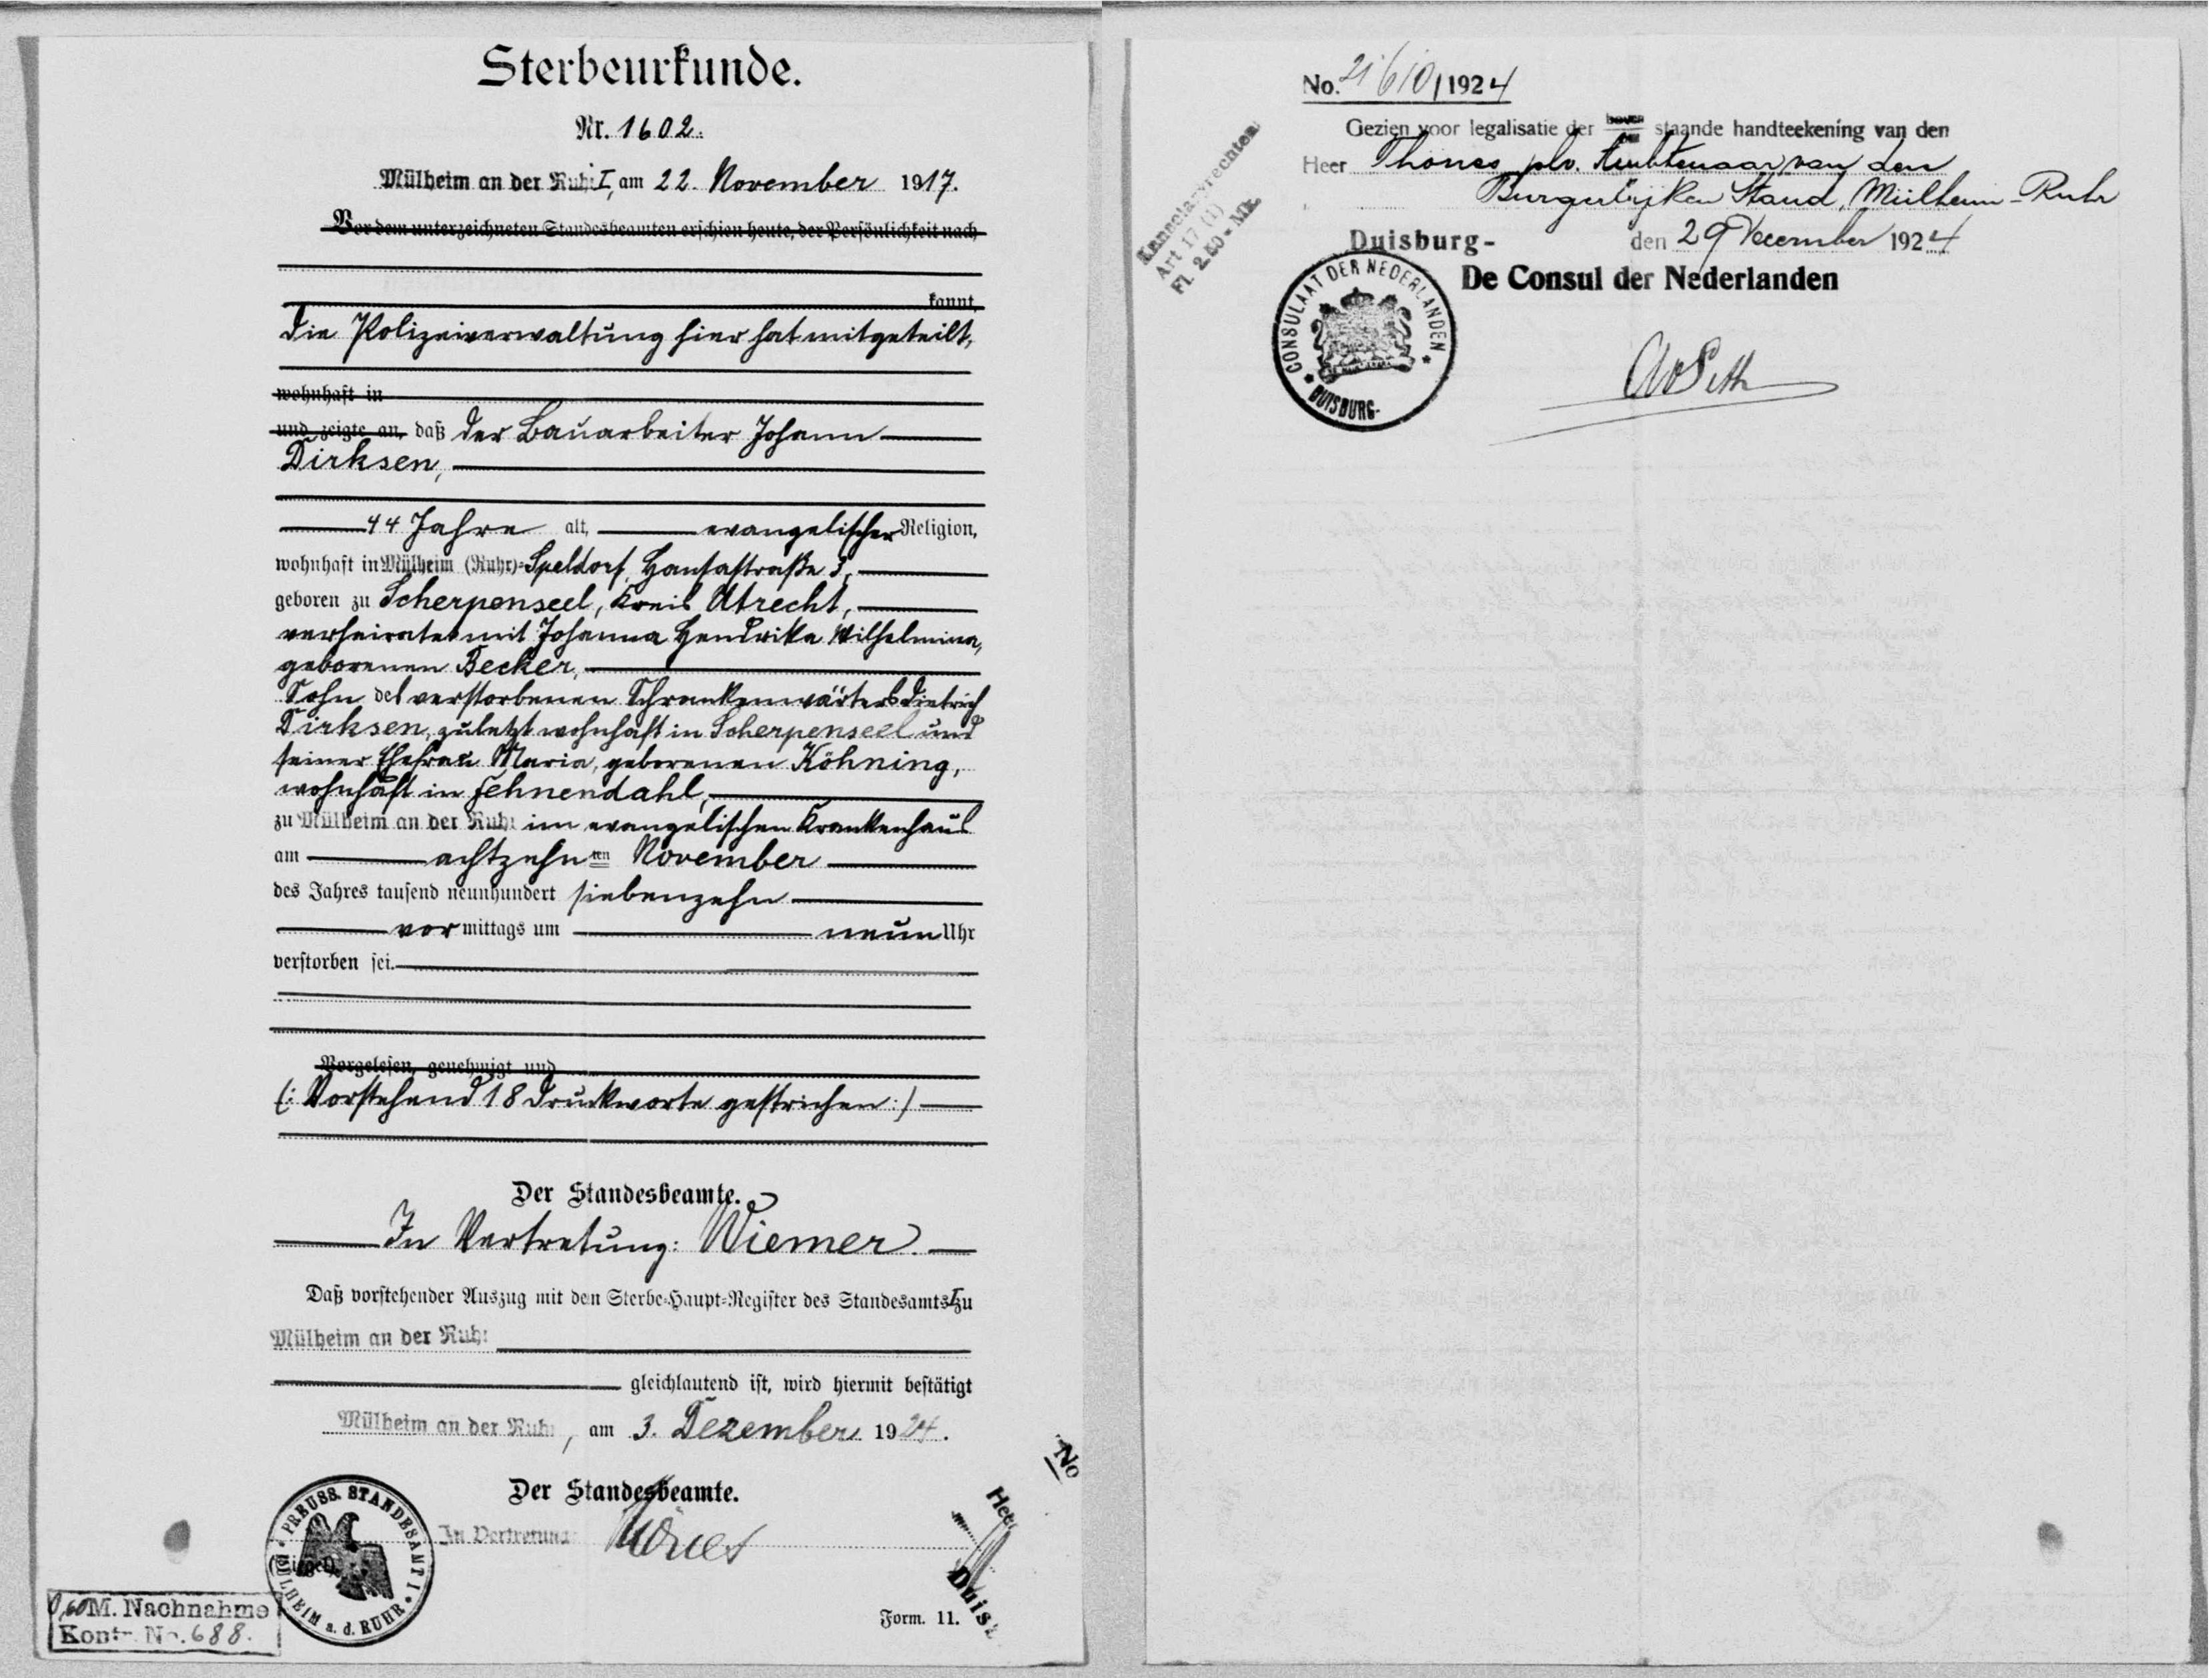 Sterbeurkunde.
Nr. 1602.
Mülheim an der Ruhr I, am 22. November 1917.
Vor dem unterzeichneten Standesbeamten erschien heute, der Persönlichkeit nach
kannt,
die Polizeiverwaltung hier hat mitgeteilt,
wohnhaft in
und zeigte an, daß der Bauarbeiter Johann
Dirksen,
44 Jahre alt, evangelischer Religion,
wohnhaft in Mülheim (Ruhr)-Speldorf, Hansastraße 3,
geboren zu Scherpenseel, Kreis Utrecht,
verheiratet mit Johanna Hendrika Wilhelmina,
geborenen Becker,
Sohn des verstorbenen Schrankenwärters Dietrich
Dirksen, zuletzt wohnhaft in Scherpenseel und
seiner Ehefrau Maria, geborenen Köhning,
wohnhaft in Fehnendahl,
zu Mülheim an der Ruhr im evangelischen Krankenhaus
am achtzehnten November
des Jahres tausend neunhundert siebenzehn
vor mittags um neun Uhr
verstorben sei.
Vorgelesen, genehmigt und
(: Vorstehend 18 Druckworte gestrichen :)
Der Standesbeamte.
In Vertretung: Wiemer.
Daß vorstehender Auszug mit dem Sterbe-Haupt-Register des Standesamts I zu
Mülheim an der Ruhr
gleichlautend ist, wird hiermit bestätigt
Mülheim an der Ruhr, am 3. Dezember 1924.
Der Standesbeamte.
In Vertretung
PREUSS. STANDESAMT I
MÜLHEIM a. d. RUHR
(Siegel)
0,60 M. Nachnahme
Kontr. No. 688.
Form. 11.
No
Heer
Duis
No. 21610/1924
Gezien voor legalisatie der boven staande handteekening van den
Heer Thönes plv. Ambtenaar van den
Burgerlijken Stand, Mülheim-Ruhr
Duisburg- den 29 December 1924
De Consul der Nederlanden
CONSULAAT DER NEDERLANDEN
DUISBURG-
Kanselarijrechten
Art 17 (1)
Fl. 2.50 = Mk.